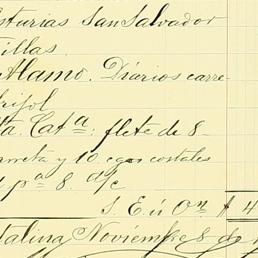 Asturias San Salvador
tillas.
Alamo. Diarios carre-
Grifol
ta. Cat.ª: flete de 8-
arreta y 10 costales
pª 8. d/c
S. E. ú On $ 4
talina Noviembre 8 de